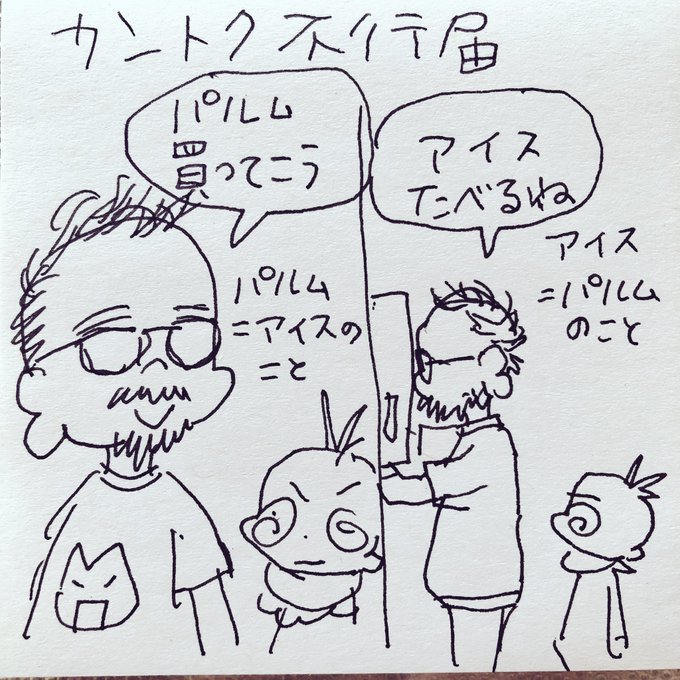 カントク不行届
パルム
買ってこう
パルム
=アイスの
こと
アイス
たべるね
アイス
=パルム
のこと